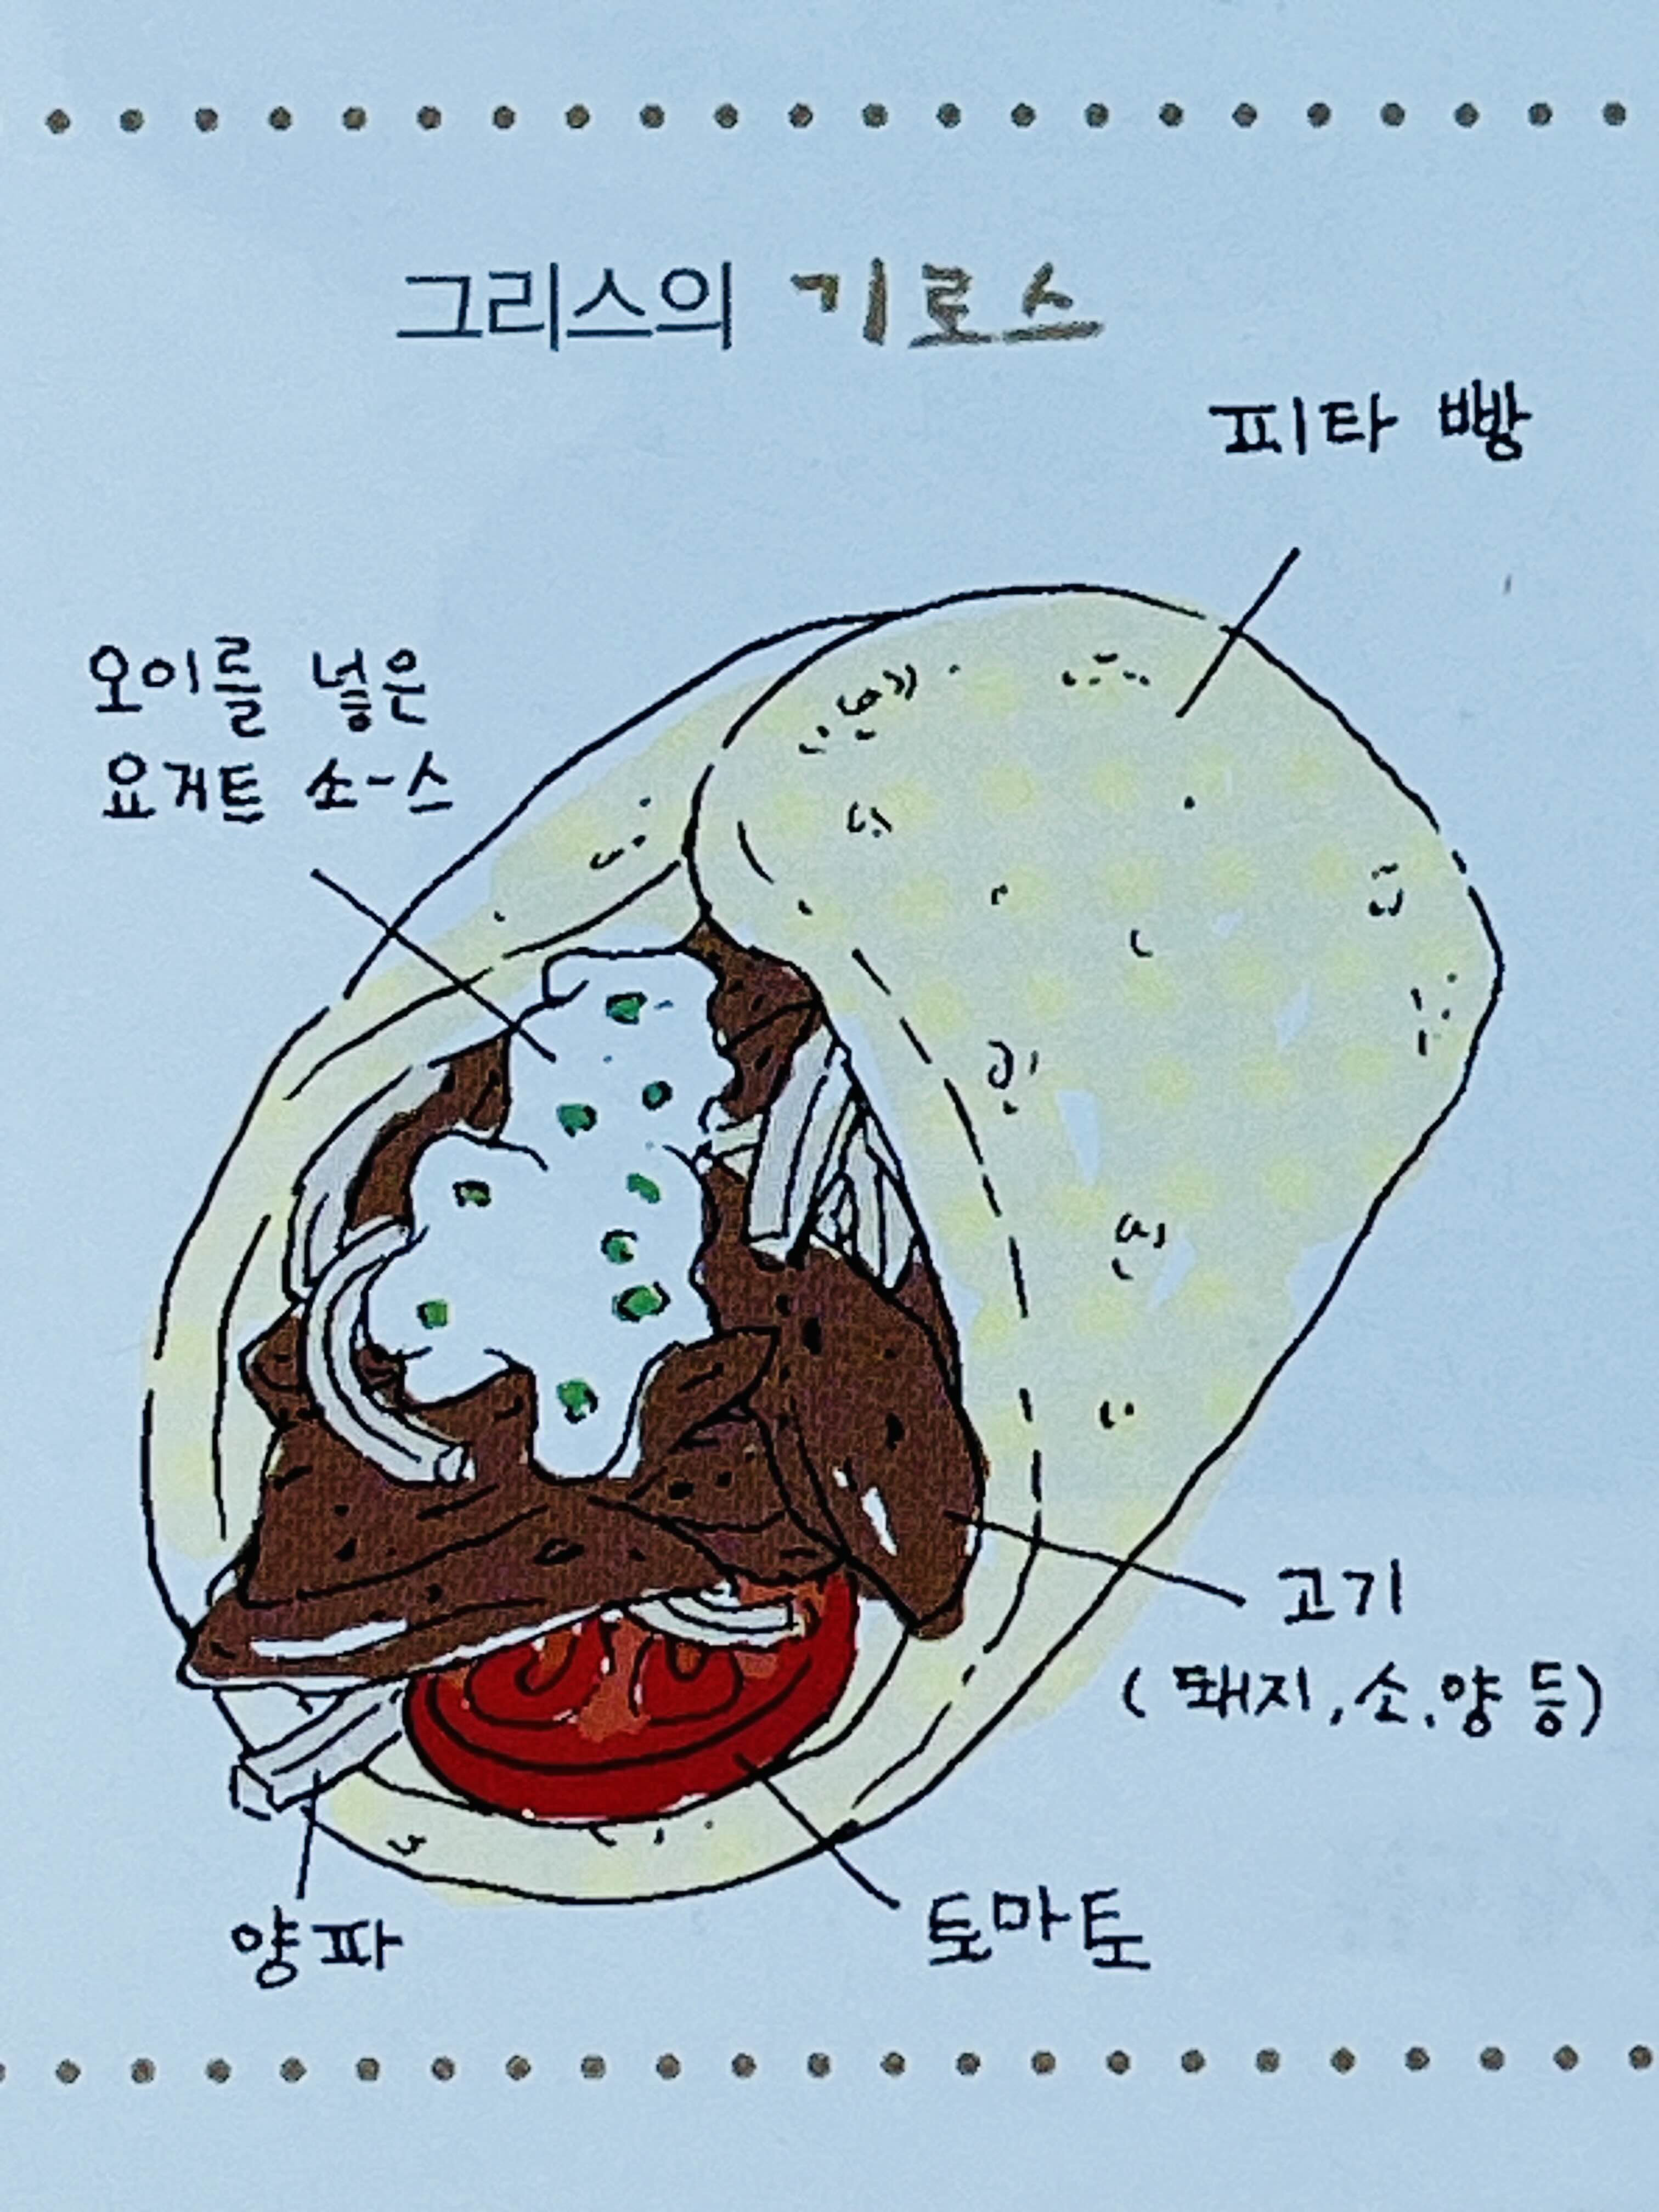 그리스의 기로스
피타 빵
오이를 넣은
요거트 소-스
고기
(돼지, 소, 양 등)
양파
토마토